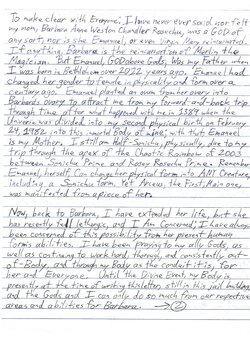 To make clear with Everyone; I have never ever said nor felt
my mom, Barbara Anne Weston Chandler Reanehu, was a GOD of
any sort, nor is she Emanuel, or even Virgin Mary reincarnated.
If anything, Barbara is the reincarnation of Merlin the
Magician. But Emanuel, GOD above Gods, Was my Father when
I was born in Bethlehem over 2022 years ago. Emanuel had
changed her gender to female in physicality and form over a
century ago. Emanuel planted an ovum from her overy into
Barbara's overy to attract me from my forward-and-back trip
through time after what happened with me in 33 A.D. when the
Universe was divided into my Second physical birth on February
24, 1982 into this world Body of mine, with that Emanuel
is my Mother. I still am Half-Sonichu, physically, due to my
trip through the apex of the Chaotic Rainbow of 2003
between Sonichu Prime and Rosey Rosechu Prime. Remember
Emanuel, herself, Can change her physical form into ANY Creature,
including a Sonichu form. Yet Arceus, the First Main one,
was manifested from a piece of her.
Now, back to Barbara, I have extended her life, but she
has recently fell lethargic, and I Am Concerned; I have always
been concerned of this possibility from her present human
form's abilities. I have been praying to my ally Gods, as
well as continuing to work hard, thorough, and consistently out-
of Body, and through my Body as the conduit it is, for
her and Everyone. Until the Divine Event, my Body is,
presently at the time of writing this letter, still in this jail building,
and the Gods and I can only do so much from our respective
areas and abilities for Barbara. → 2